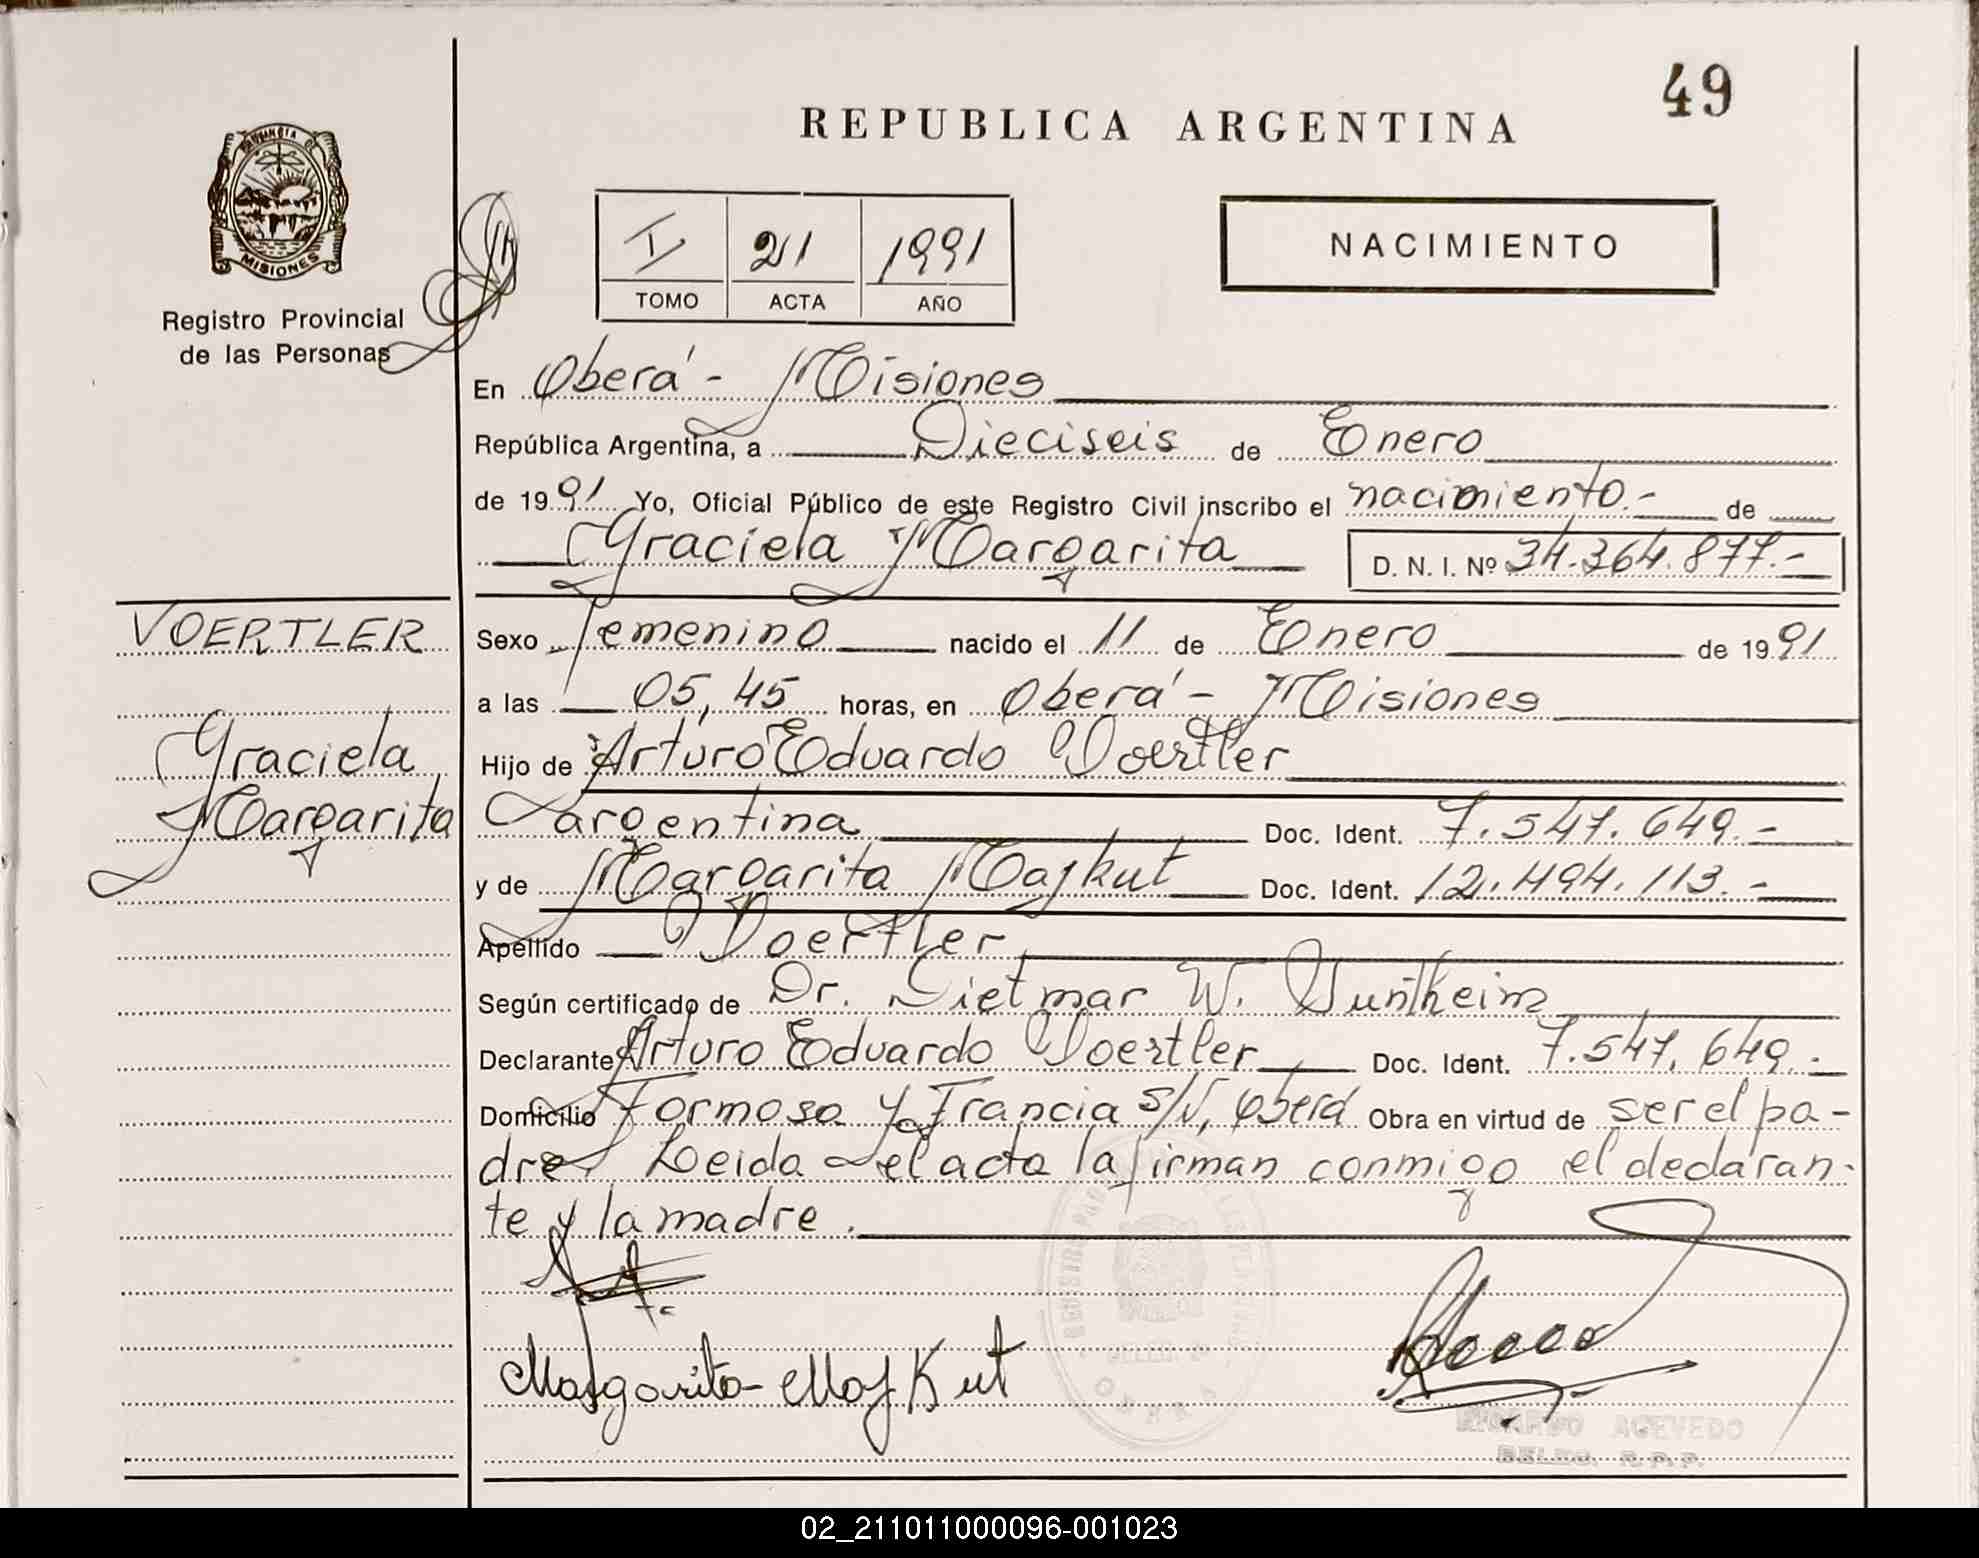 49
REPUBLICA ARGENTINA
PROVINCIA DE
MISIONES
Registro Provincial
de las Personas
I 21 1991
TOMO ACTA AÑO
NACIMIENTO
En Oberá - Misiones
República Argentina, a Dieciseis de Enero
de 1991 Yo, Oficial Público de este Registro Civil inscribo el nacimiento.- de
Graciela Margarita D. N. I. Nº 34.364.877.-
VOERTLER
Graciela
Margarita
Sexo Femenino nacido el 11 de Enero de 1991
a las 05,45 horas, en Oberá - Misiones
Hijo de Arturo Eduardo Voertler
argentina Doc. Ident. 7.547.649.-
y de Margarita Majkut Doc. Ident. 12.494.113.-
Apellido Voertler
Según certificado de Dr. Dietmar W. Suntheim
Declarante Arturo Eduardo Voertler Doc. Ident. 7.547.649.-
Domicilio Formosa y Francia s/N, Oberá Obra en virtud de ser el pa-
dre Leida el acta la firman conmigo el declaran-
te y la madre.
Margarita Majkut
OBERA
RICARDO ACEVEDO
DELEG. R.P.P.
02_211011000096-001023